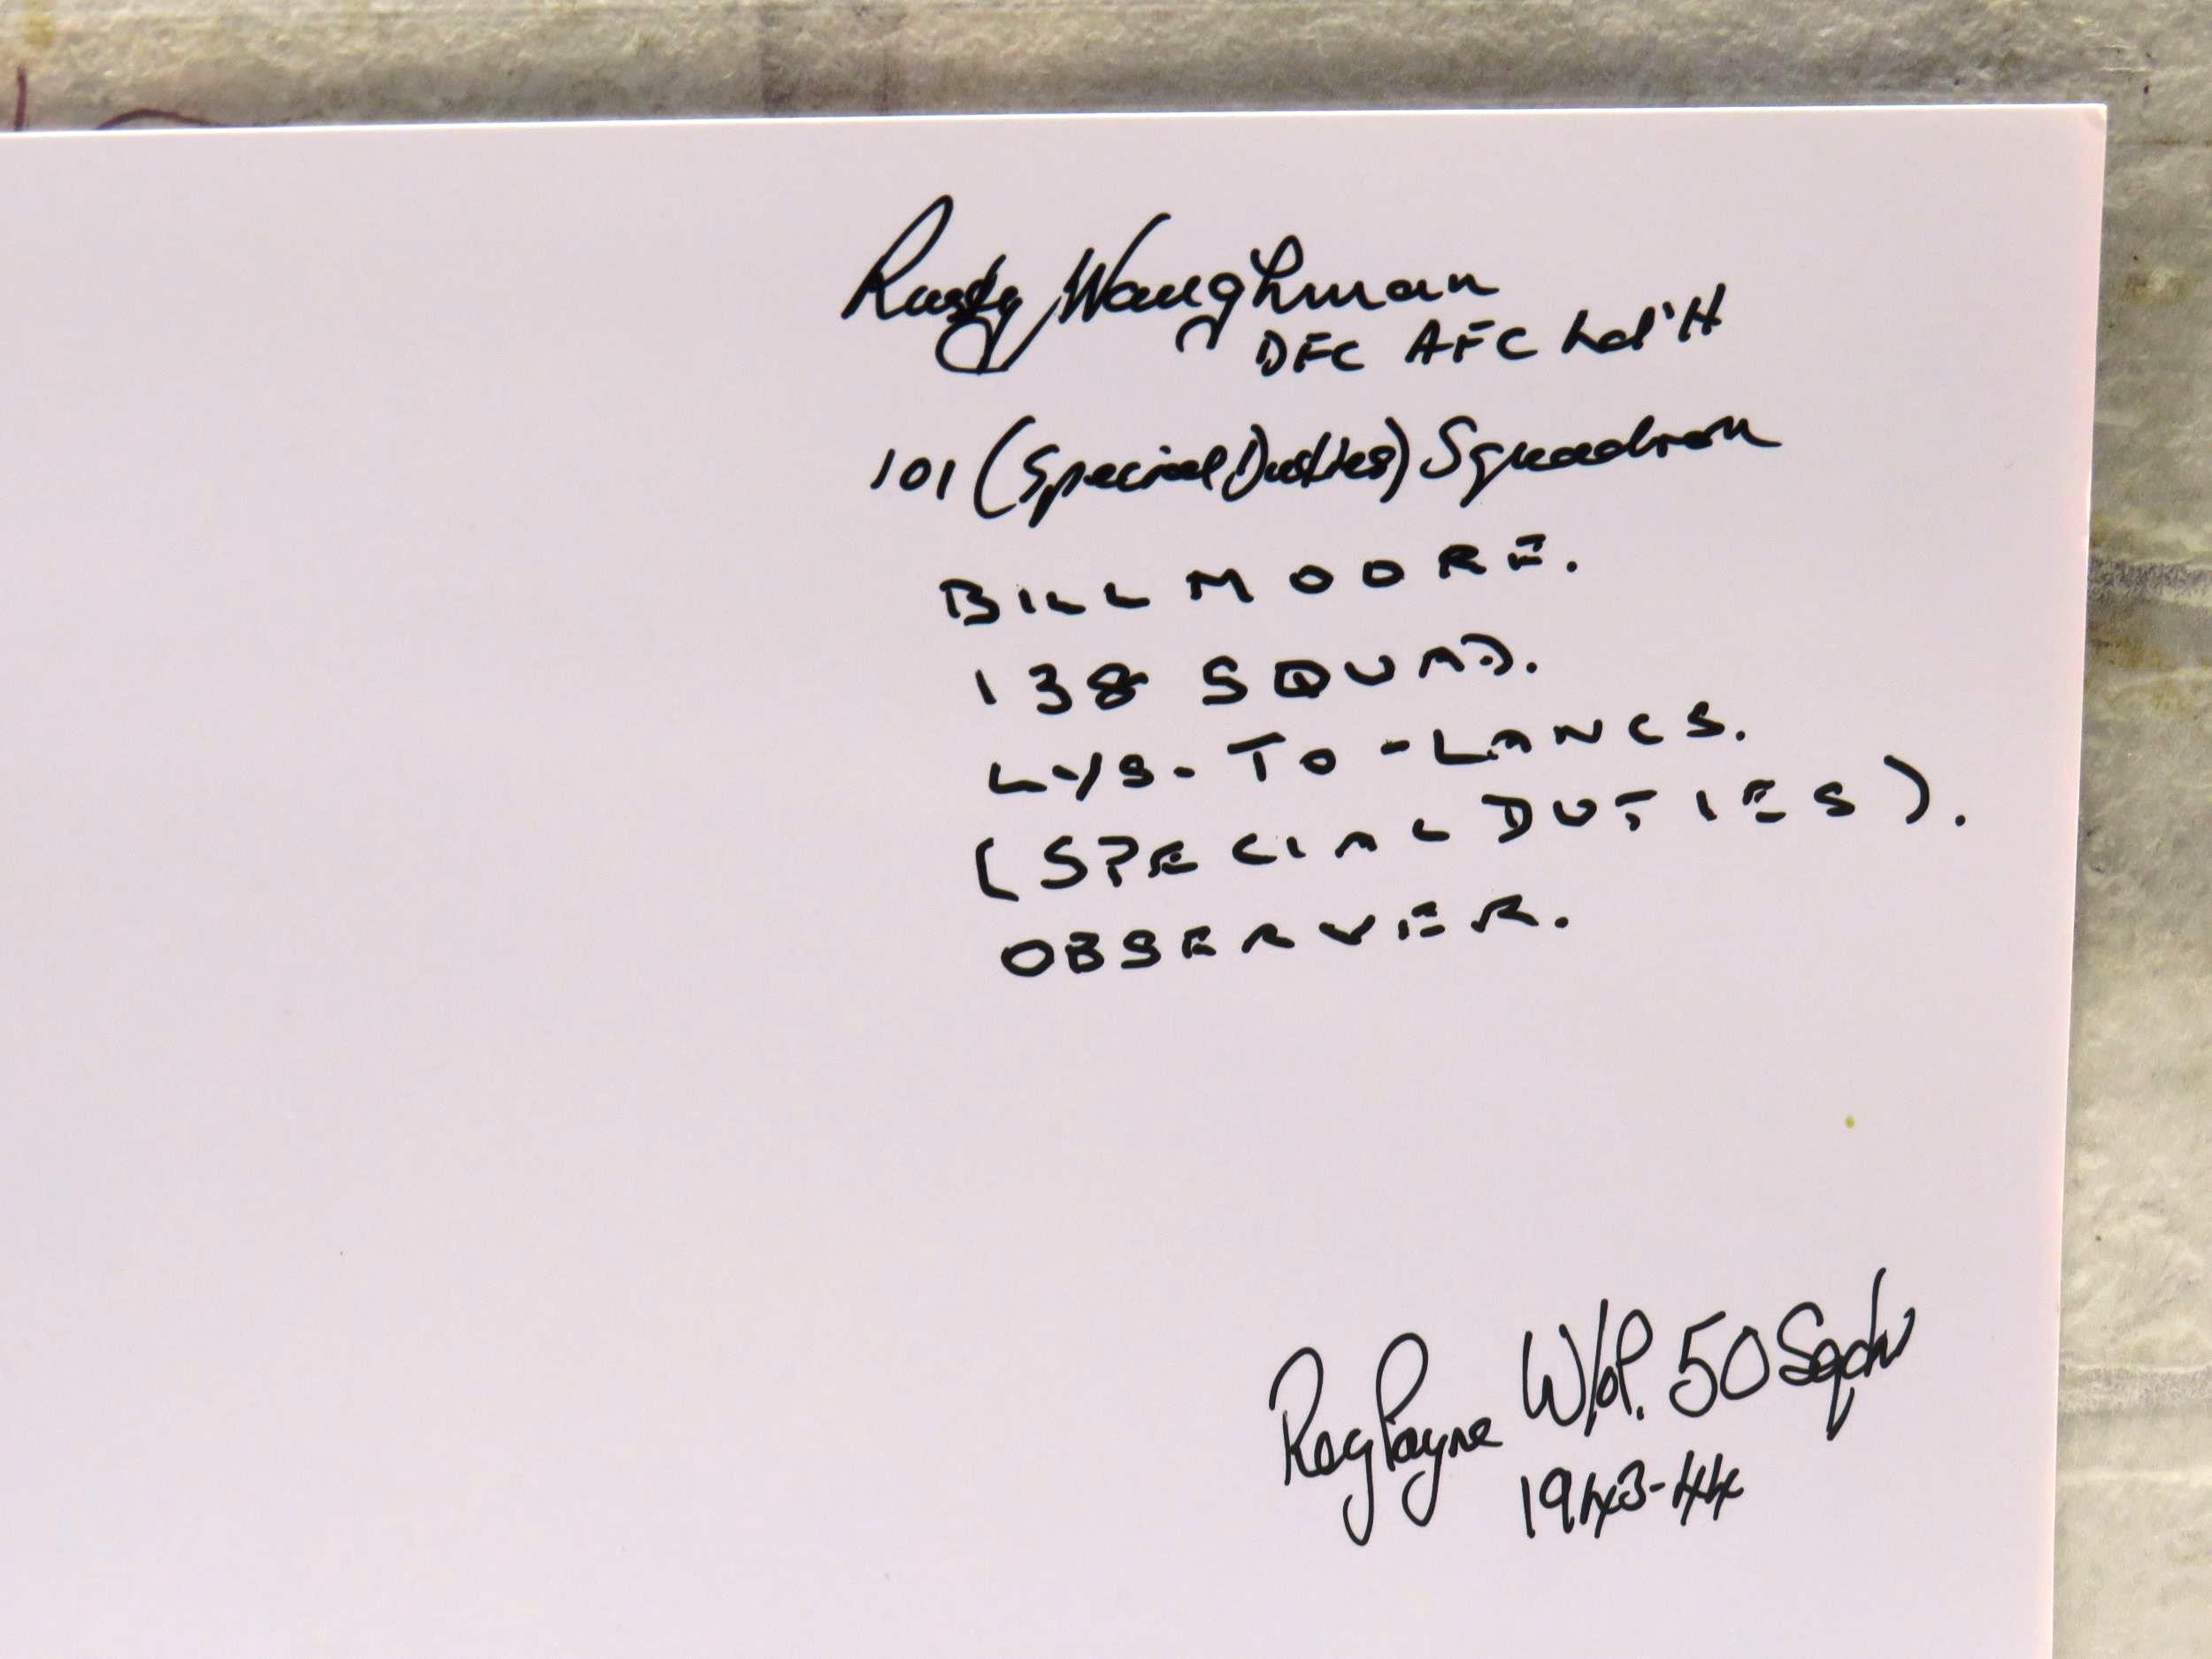 Rusty Waughman
DFC AFC Ld'H
101 (Special Duties) Squadron
BILL MOORE.
138 SQUAD.
LYS-TO-LANCS.
(SPECIAL DUTIES).
OBSERVER.
Reg Payne W/OP. 50 Sqdn
1943-44